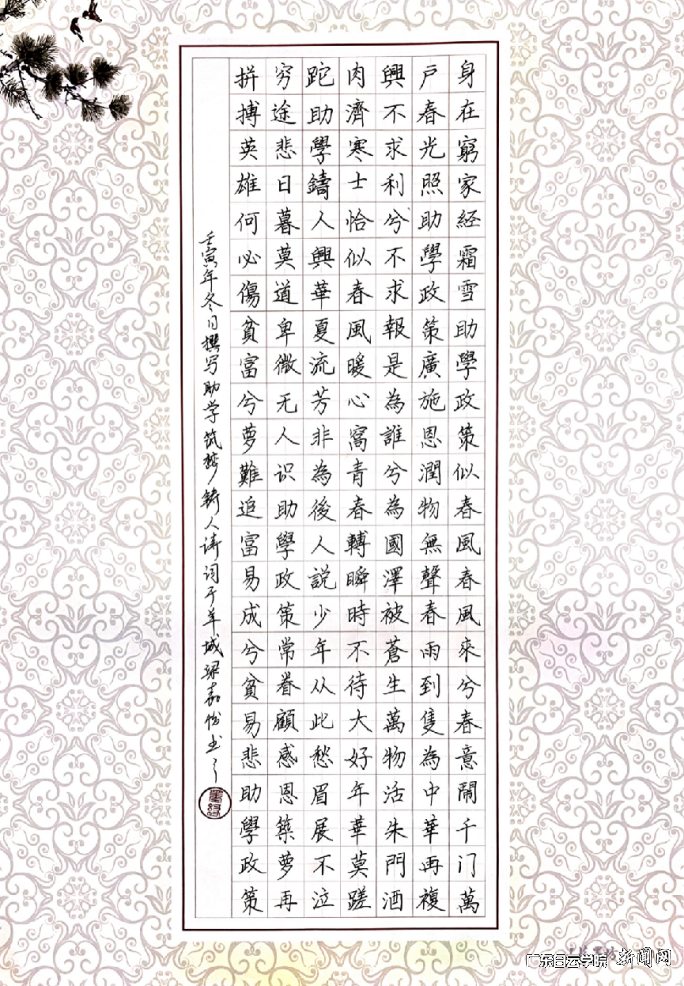 身在窮家經霜雪助學政策似春風春風來兮春意鬧千门萬
戶春光照助學政策廣施恩潤物無聲春雨到隻為中華再複
興不求利兮不求報是為誰兮為國澤被蒼生萬物活朱門酒
肉濟寒士恰似春風暖心窩青春轉瞬時不待大好年華莫蹉
跎助學鑄人興華夏流芳非為後人説少年从此愁眉展不泣
穷途悲日暮莫道卑微无人识助學政策常眷顧感恩築夢再
拼搏英雄何必傷貧富兮夢難追富易成兮貧易悲助學政策
壬寅年冬月撰写助学筑梦铸人诗词于羊城梁嘉怡书之
广东白云学院 新闻网